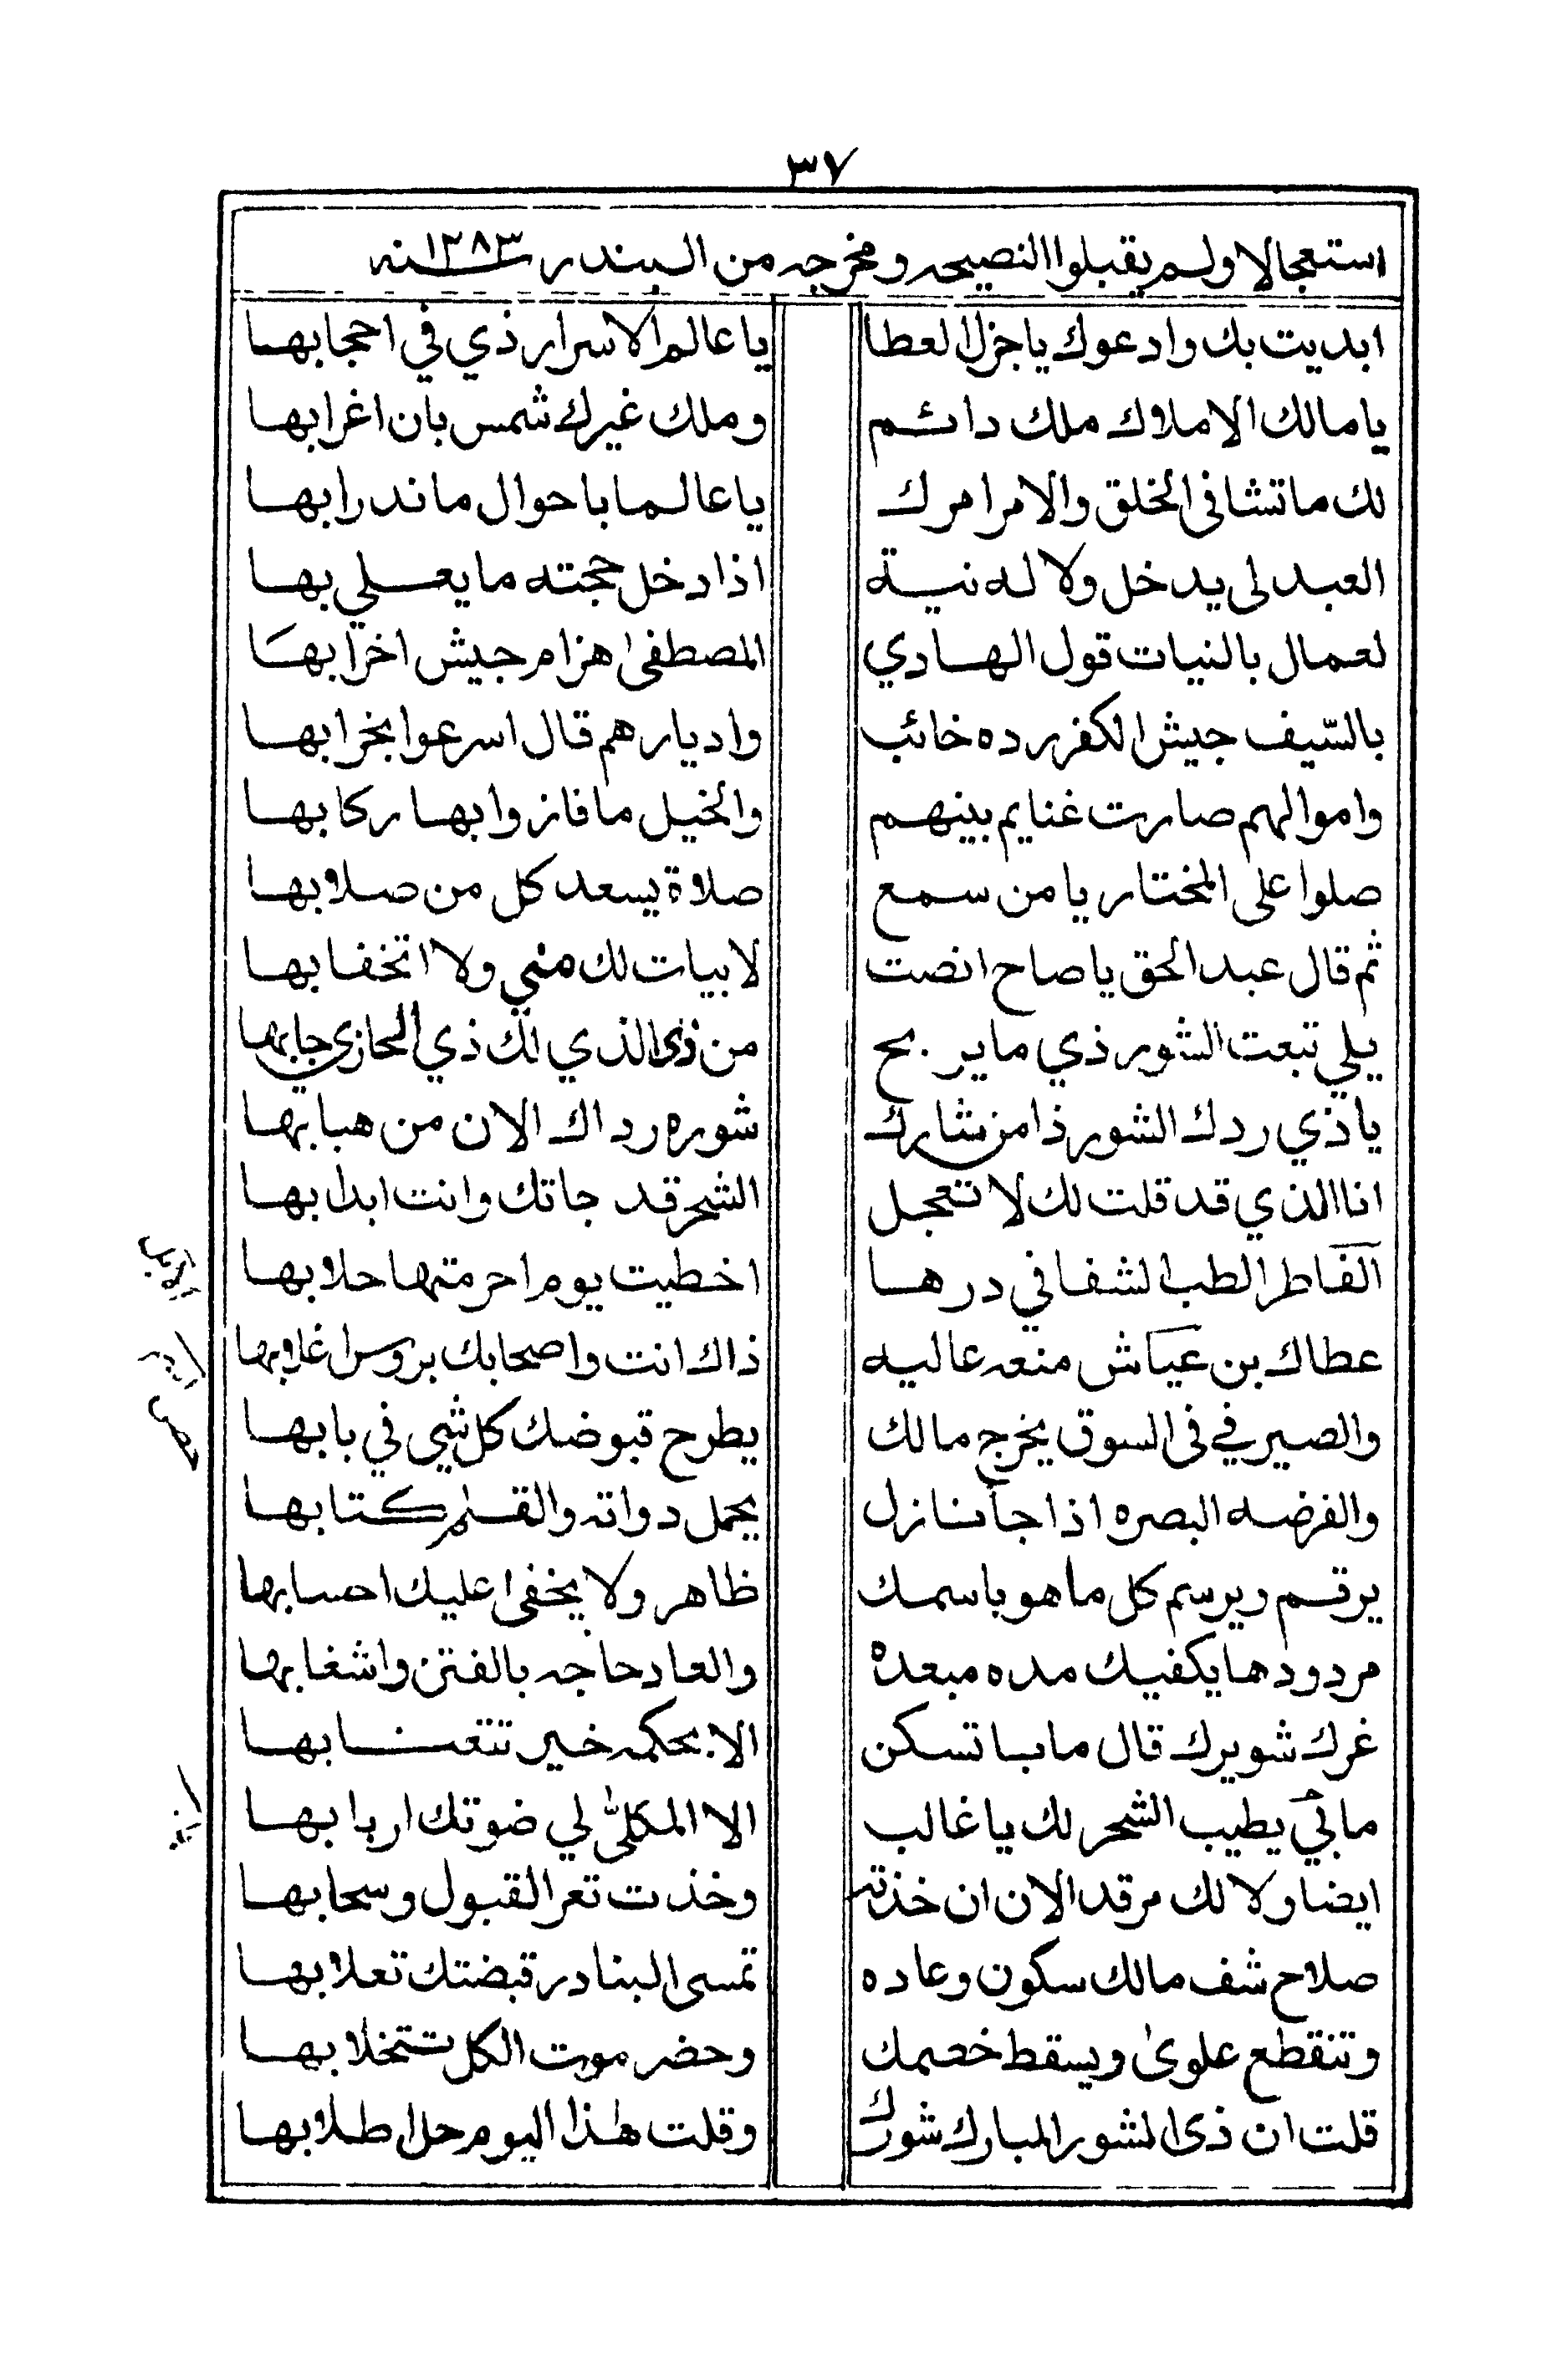 ٣٧
استعجالا ولم يقبلوا النصيحه ومخرجه من البندر سنه ١٢٨٣
ابديت بك وادعوك ياجزل العطا يا عالم الاسرار ذي في احجابها
يا مالك الاملاك ملك دائم وملك غيرك شمس بان اغرابها
لك ما تشا في الخلق والامر امرك يا عالما باحوال ما ندرا بها
العبد لى يدخل ولا له نية اذا دخل حجته ما يعلي بها
لعمال بالنيات قول الهادي المصطفى هزام جيش اخرابها
بالسّيف جيش الكفر رده خائب واديارهم قال اسرعوا بخرابها
واموالهم صارت غنايم بينهم والخيل ما فازوا بها ركابها
صلوا على المختار يا من سمع صلاة يسعد كل من صلا بها
ثم قال عبد الحق يا صاح انصت لابيات لك مني ولا اتخفا بها
يلي تبعت الشور ذي ما يربح من ذى الذي لك ذي المحازي جابها
يا ذي ردك الشور ذا من شارك شوره رداك الان من هبابها
انا الذي قد قلت لك لا تعجل الشحر قد جاتك وانت ابدا بها
الفاطر الطب الشفا في درها اخطيت يوم احرمتها حلابها
عطاك بن عياش منعه عاليه ذاك انت واصحابك بروس اغلابها
والصيرفي فى السوق يخرج مالك يطرح قبوضك كل شي في بابها
والفرضه البصره اذا جأنا نازل يحمل دواته والقلم كتابها
يرقم ويرسم كل ما هو باسمك ظاهر ولا يخفى عليك احسابها
مردودها يكفيك مده مبعده والعاد حاجه بالفتن واشغابها
غرك شويرك قال ما با تسكن الا بحكمه خير تتعنا بها
ما بي يطيب الشحر لك يا غالب الا المكلىّ لي ضوتك اربابها
ايضا ولا لك مرقد الان ان خذته وخذت تعر القبول وسحابها
صلاح شف مالك سكون وعاده تمسى البنادر قبضتك تعلا بها
وتنقطع علوى ويسقط خصمك وحضرموت الكل تتخلا بها
قلت ان ذى الشور المبارك شورك وقلت هذا اليوم حل اطلابها
الابل